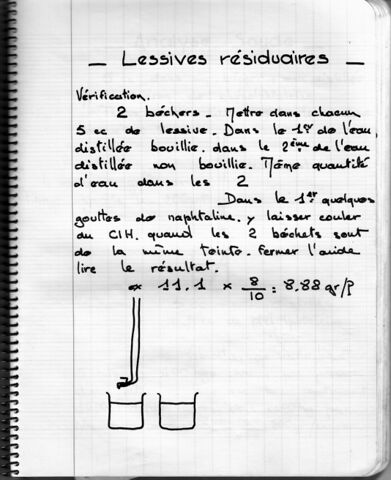 — Lessives résiduaires —
Vérification.
2 béchers. Mettre dans chacun
5 cc de lessive. Dans le 1er de l'eau
distillée bouillie. dans le 2ème de l'eau
distillée non bouillie. Même quantité
d'eau dans les 2
Dans le 1er quelques
gouttes de naphtaline. y laisser couler
du ClH. quand les 2 béchets sont
de la même teinte. fermer l'acide
lire le résultat.
ex 11.1 x 8/10 = 8.88 gr/l